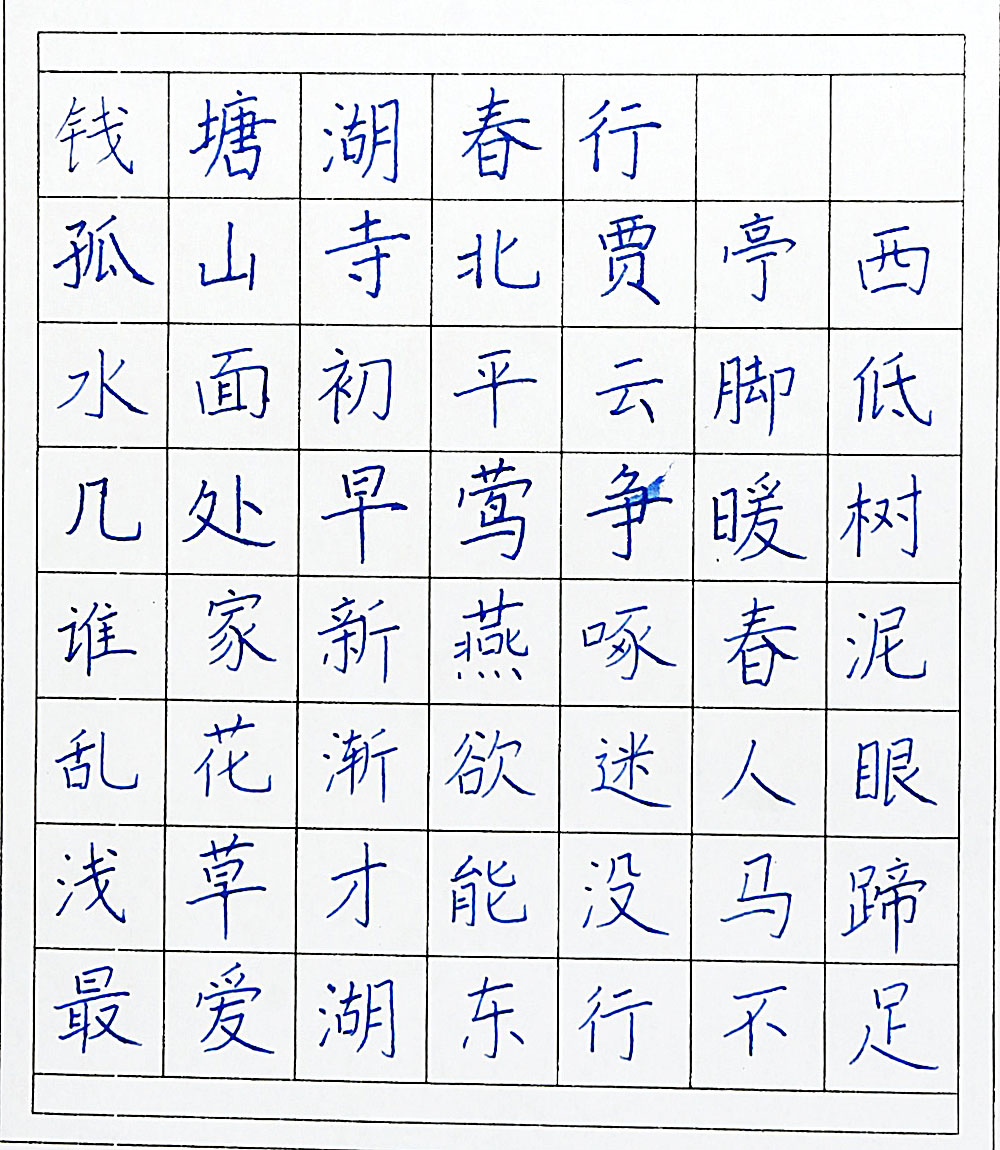 钱塘湖春行
孤山寺北贾亭西
水面初平云脚低
几处早莺争暖树
谁家新燕啄春泥
乱花渐欲迷人眼
浅草才能没马蹄
最爱湖东行不足